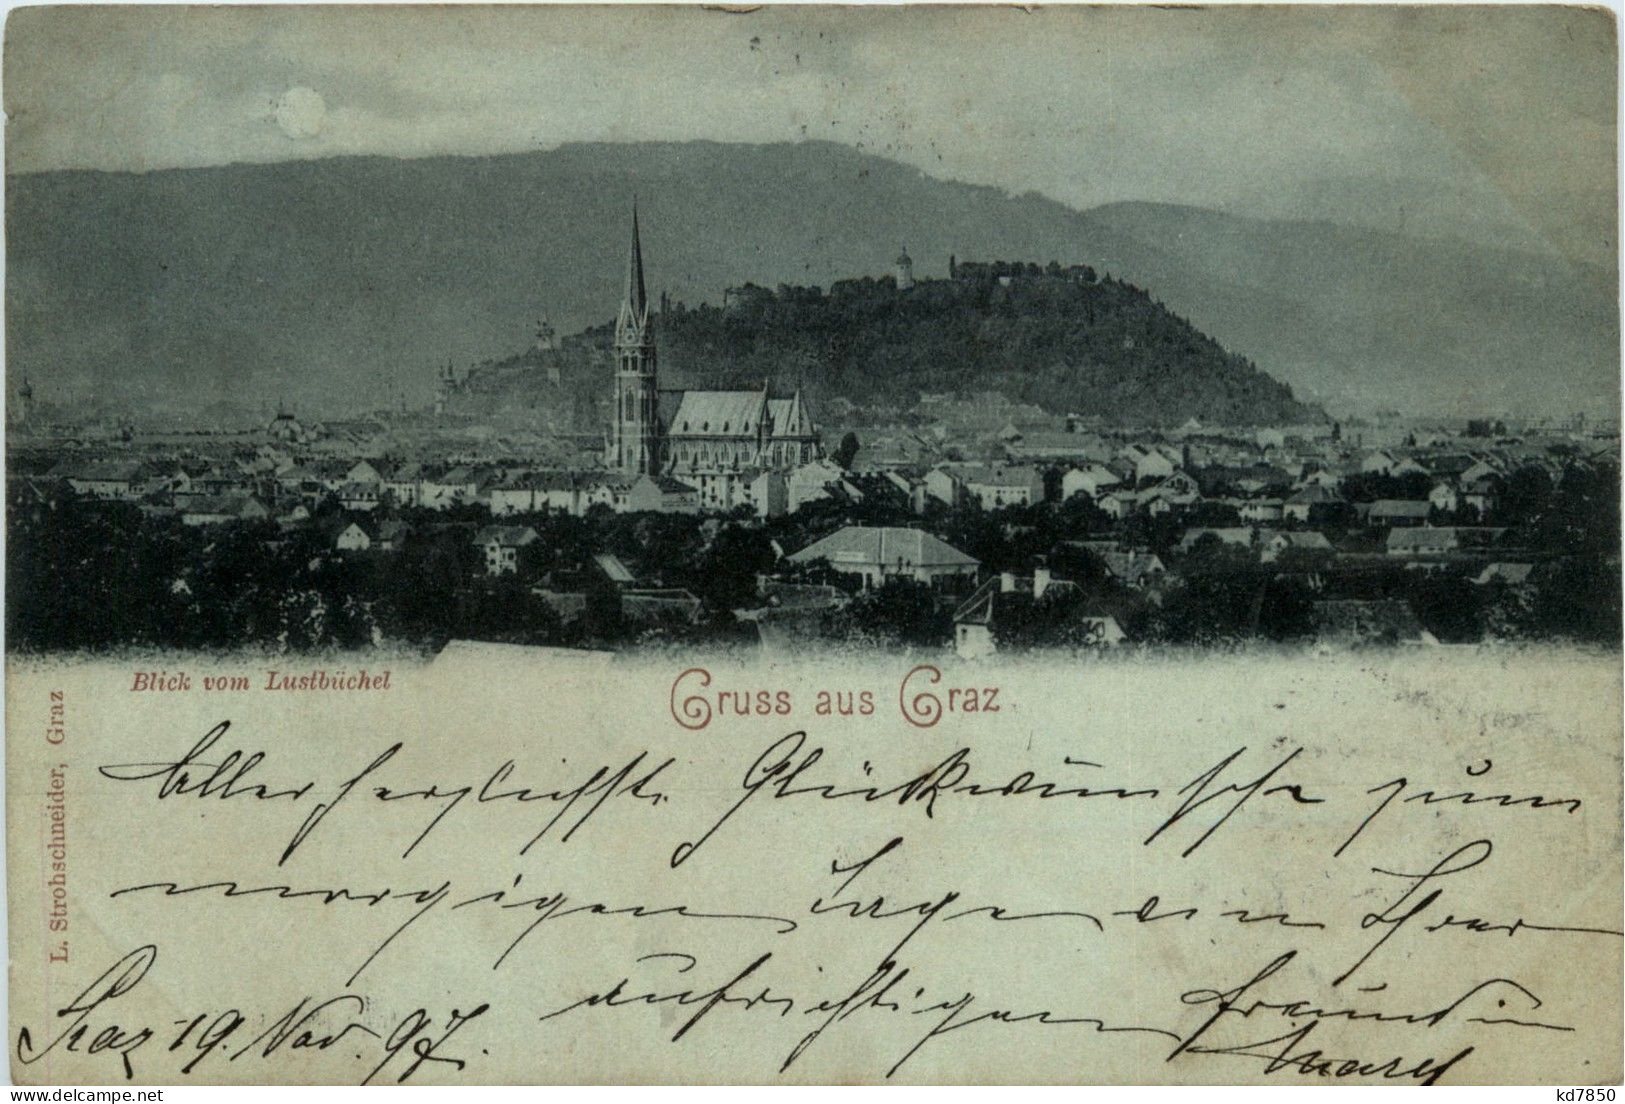 Blick vom Lustbüchel
Gruss aus Graz
L. Strohschneider, Graz
Allerherzlichste Glückwünsche zum
morgigen Tage von Ihrer
aufrichtigen Freundin
Graz 19. Nov. 97.
delcampe.net
kd7850